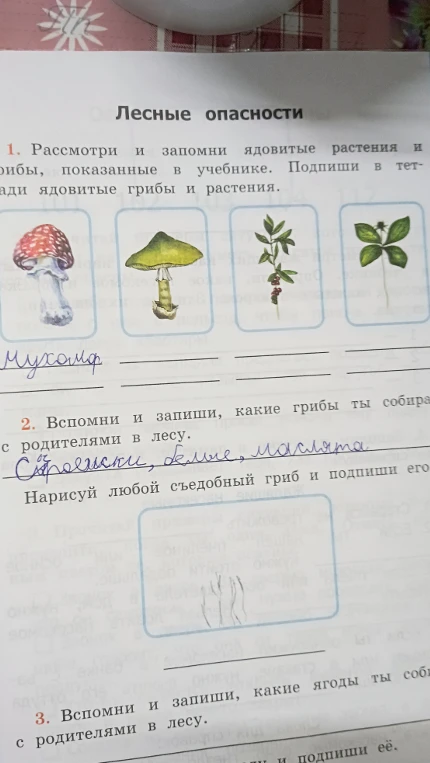 Лесные опасности
1. Рассмотри и запомни ядовитые растения и
рибы, показанные в учебнике. Подпиши в тет-
ади ядовитые грибы и растения.
Мухомор
2. Вспомни и запиши, какие грибы ты собира
с родителями в лесу.
Сыроежки, белые, маслята
Нарисуй любой съедобный гриб и подпиши его
3. Вспомни и запиши, какие ягоды ты соби
с родителями в лесу.
и подпиши её.